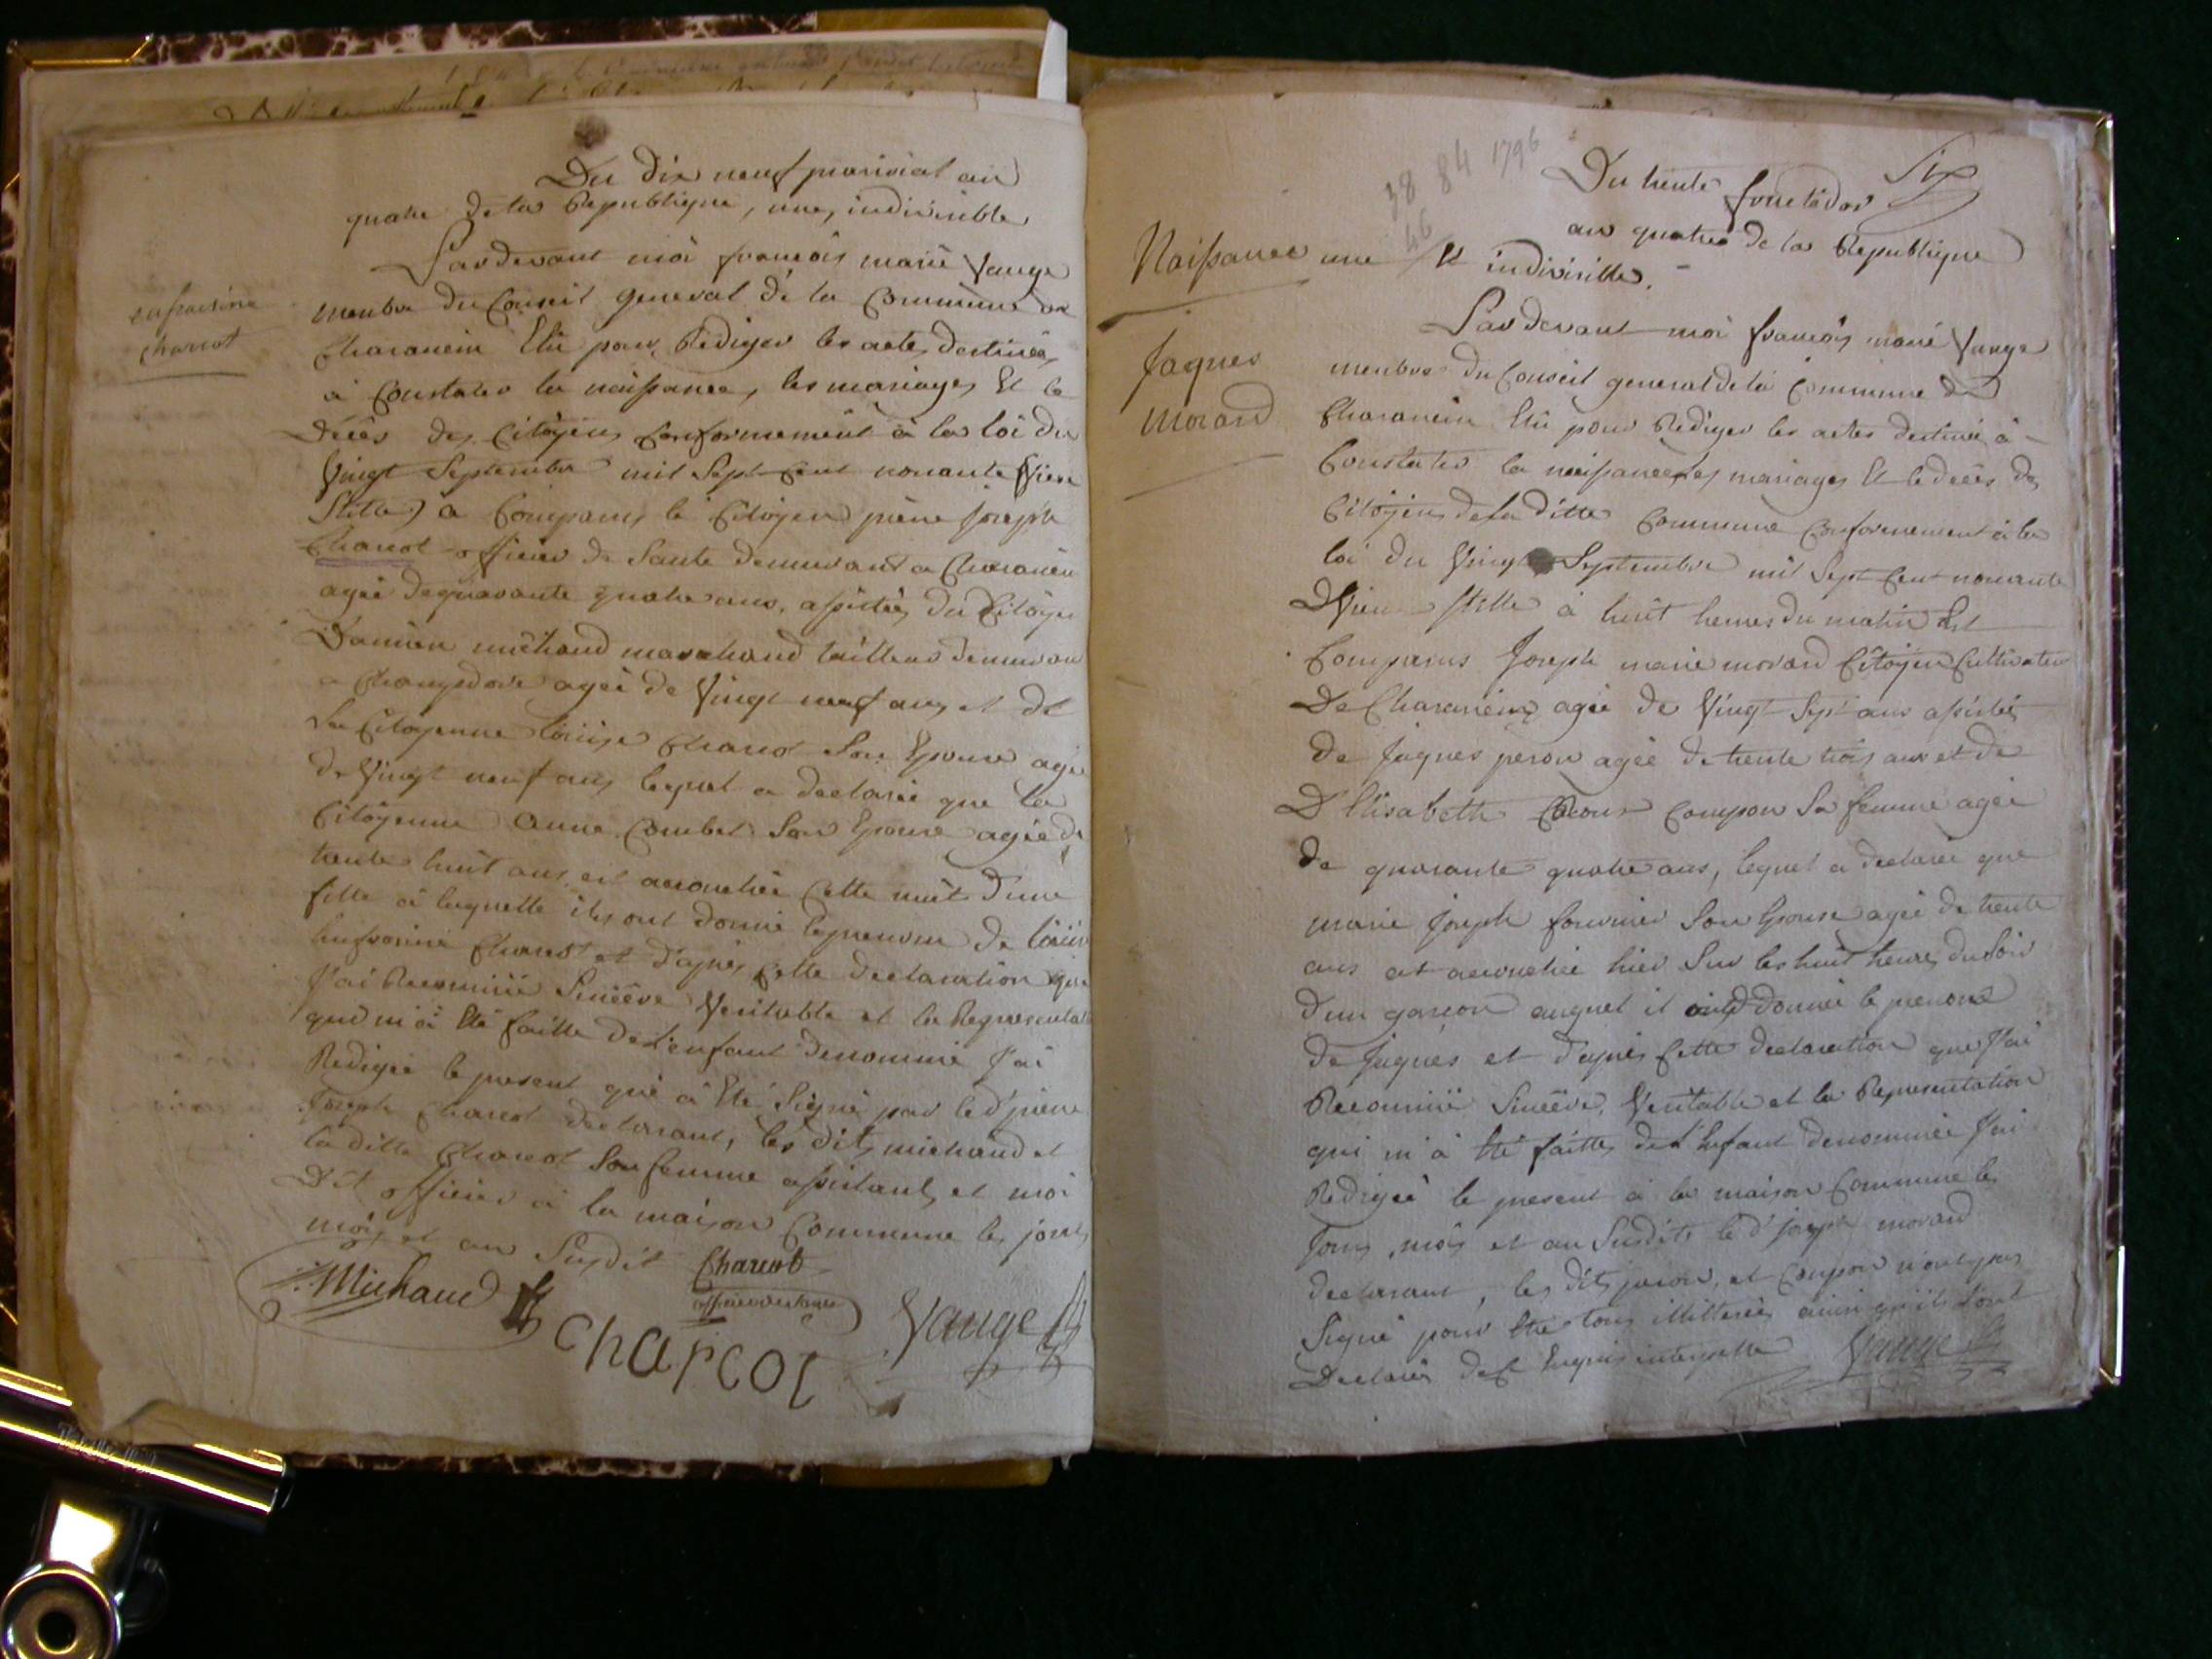 Du Dix neuf prairial an
quatre de la Republique, une, indivisible
Pardevant moi françois marie Vauge
membre du Conseil general de la Commune de
Charancin Elû pour Rediger les actes destinées
à Constater la naissance, les mariages Et le
Décès des Citoÿens Conformement à la loi du
Vingt Septembre mil Sept Cent nonante Vieux
Stile) a Comparus le Citoÿen piérre Joseph
Charcot officier de Santé demeurant a Charancin
agée de quarante quatre ans, assistées du Citoÿen
Damien michaud marchand tailleur demeurant
a Champdore agée de Vingt neuf ans et de
La Citoyenne loüise Charcot Son Epouse agée
de Vingt neuf ans lequel a declarée que la
Citoÿenne Anne Combet Son Epouse agée de
trente huit ans est accouchée Cette nuit d'une
fille à laquelle ils ont donné le prenom de loüise
Charcot et d'après Cette declaration que
J'ai Reconnüe Sincêre Veritable et la Representation
qui m'a Eté faitte de L'enfant denommé J'ai
Redigée le present qui à Eté Signé par le d' piérre
Joseph Charcot declarant, les dits michaud et
la ditte Charcot Son femme assistant, et moi
Dit officier à la maison Commune les jour,
mois et an Susdit Charcot
Michaud Charcot Vauge
Charcot
38 84 1796
46
Six
Du trente fructidor
an quatre de la Republique
une Et indivisible.
Naissance
Jaques
morard
Pardevant moi françois marie Vauge
membre du Conseil general de la Commune de
Charancin Elû pour Rediger les actes destinée à
Constater la naissance, les mariages Et le decès des
Citoÿens de la ditte Commune Conformement à la
loi du Vingt Septembre mil Sept Cent nonante
Vieu Stille à huit heures du matin Est
Comparus Joseph marie morard Citoÿen Cultivateur
De Charancin agée de Vingt Sept ans assistés
de Jaques peron agée de trente trois ans et de
D'Elisabeth Compon Sa femme agée
de quarante quatre ans, lequel a declarée que
marie Joseph fournier Son Epouse agée de trente
ans est accouchée hier Sur les huit heures du Soir
d'un garçon auquel il ont donnée le prenom
de Jaques et d'après Cette declaration que J'ai
Reconnüe Sincêre, Veritable et la Representation
qui m'a Eté faitte de L'Enfant denommée J'ai
Redigée le present à la maison Commune les
Jours, mois et an Susdits le d' joseph morard
declarant, les dits peron, et Compon n'ont pas
Signé pour Etre tous illitterés ainsi qu'ils L'ont
Declarés de Enquis interpellé Vauge